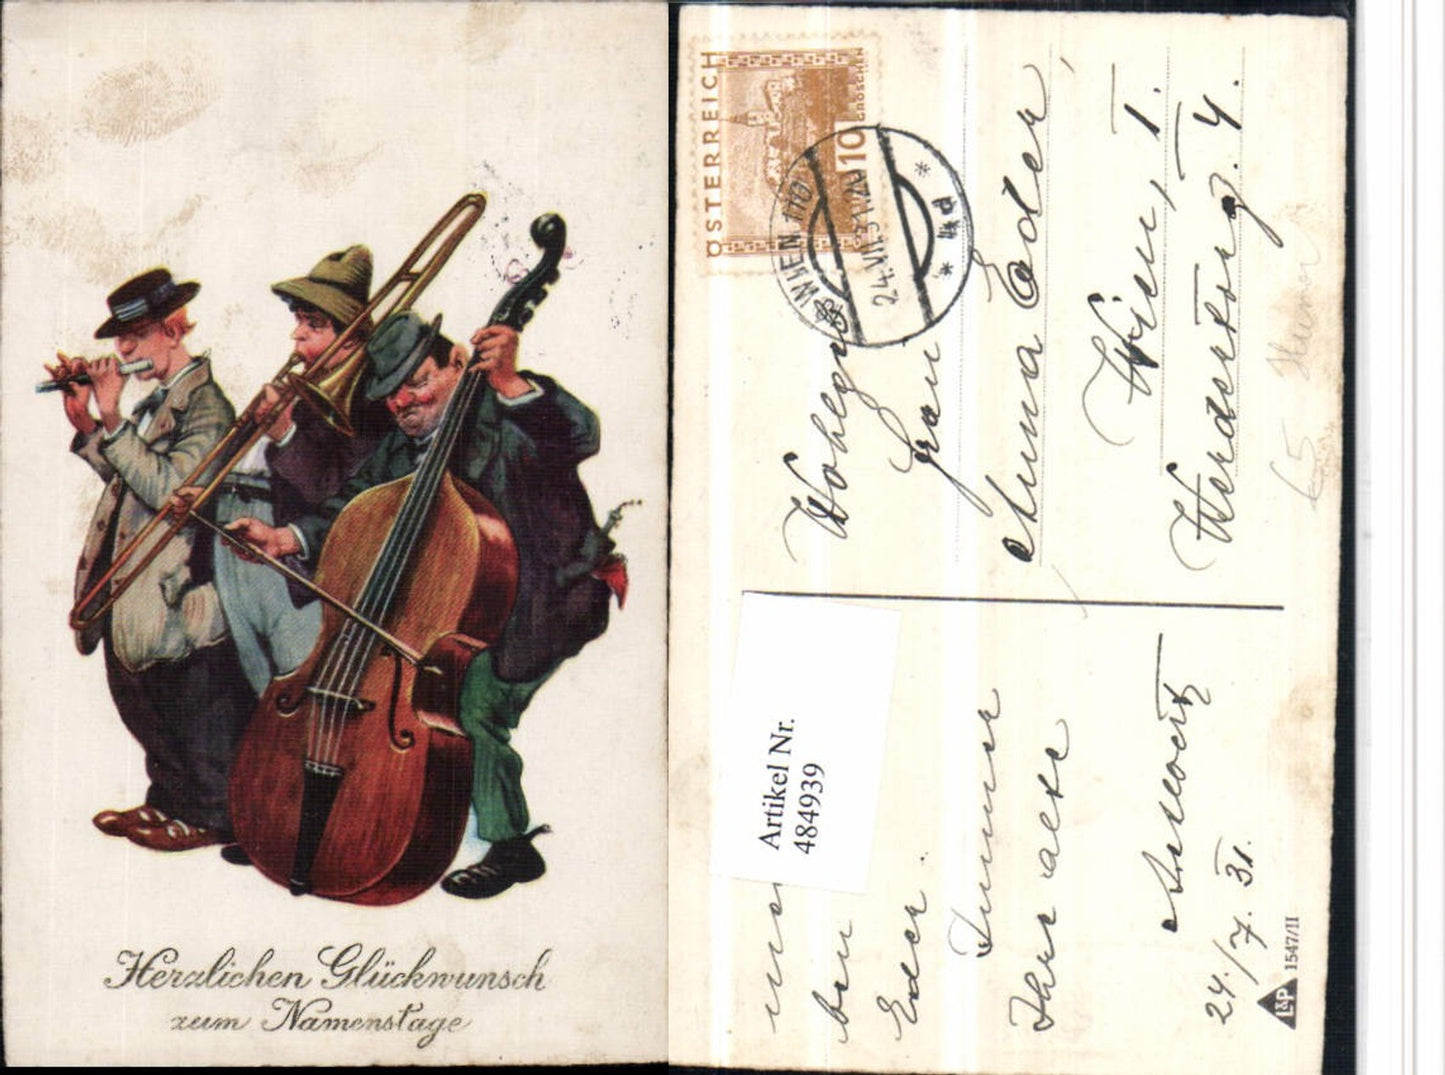 Herzlichen Glückwunsch
zum Namenstage
ÖSTERREICH
10 GROSCHEN
WIEN 110
24.VII.31.20
* 4d *
Wohlgeb.
Frau
Anna Eder
Wien, I.
Werdertorg. 4.
Artikel Nr.
484939
Eder.
Immer
Ihre alte
24./7. 31.
L&P 1547/II
65